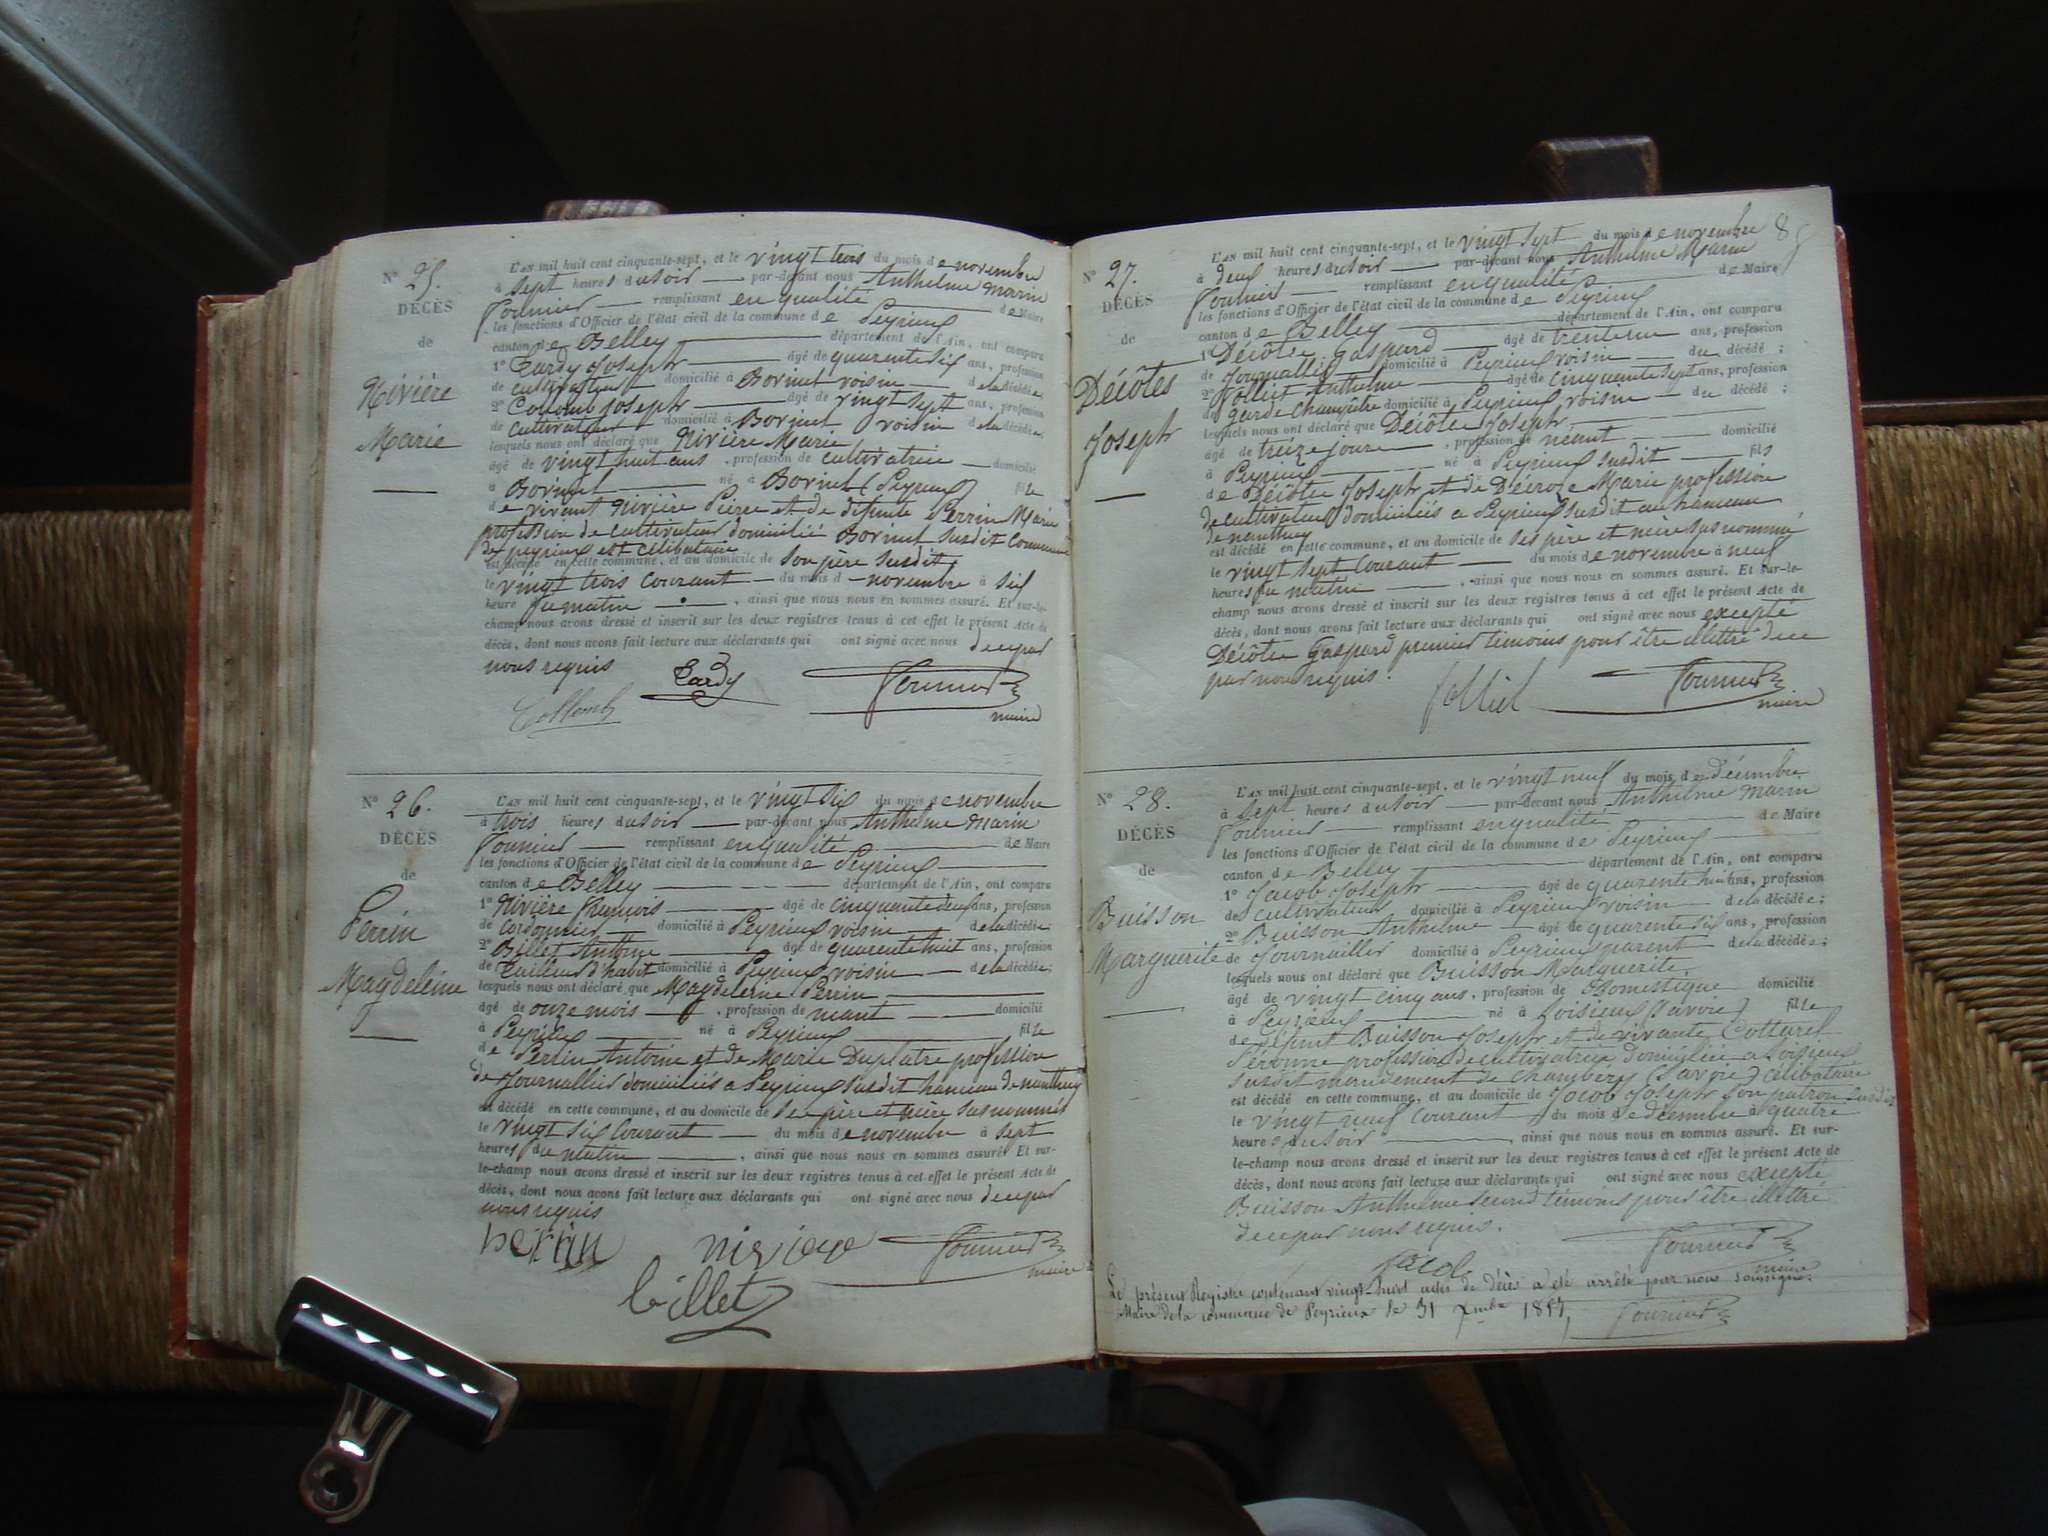 N° 25.
DÉCÈS
de
Rivière
Marie
L'AN mil huit cent cinquante-sept, et le vingt trois du mois de novembre
à sept heures du soir par-devant nous Anthelme Marin
Fournier remplissant en qualité de Maire
les fonctions d'Officier de l'état civil de la commune de Peyrieux
canton de Belley département de l'Ain, ont comparu
1° Tardy Joseph âgé de quarente six ans, profession
de cultivateur domicilié à Borinet voisin de la décédée;
2° Collomb Joseph âgé de vingt sept ans, profession
de cultivateur domicilié à Borinet voisin de la décédée,
lesquels nous ont déclaré que Rivière Marie
âgé de vingt huit ans, profession de cultivatrice domicilié
à Borinet né à Borinet (Peyrieux) fille
de vivant Rivière Pierre et de défunte Perrin Marie
profession de cultivateur domicilié Borinet susdit commune
de peyrieux est célibataire
est décédé en cette commune, et au domicile de son père susdit
le vingt trois courant du mois d novembre à six
heure du matin, ainsi que nous nous en sommes assuré. Et sur-le-
champ nous avons dressé et inscrit sur les deux registres tenus à cet effet le présent Acte de
décès, dont nous avons fait lecture aux déclarants qui ont signé avec nous de ce par
nous requis
Tardy Fournier
Collomb maire
N° 26.
DÉCÈS
de
Perrin
Magdeleine
L'AN mil huit cent cinquante-sept, et le vingt six du mois de novembre
à trois heures du soir par-devant nous Anthelme Marin
Fournier remplissant en qualité de Maire
les fonctions d'Officier de l'état civil de la commune de Peyrieux
canton de Belley département de l'Ain, ont comparu
1° Rivière François âgé de cinquante deux ans, profession
de Cordonnier domicilié à Peyrieux voisin de la décédée;
2° Billet Antoine âgé de quarente huit ans, profession
de Tailleur d'habit domicilié à Peyrieux voisin de la décédée;
lesquels nous ont déclaré que Magdeleine Perrin
âgé de onze mois, profession de néant domicilié
à Peyrieux né à Peyrieux fille
de Perrin Antoine et de Marie Duplatre profession
de Journallier domiciliés a Peyrieux susdit hameau de nanthuy
est décédé en cette commune, et au domicile de ses père et mère susnommés
le vingt six courant du mois de novembre à sept
heures du matin, ainsi que nous nous en sommes assuré. Et sur-
le-champ nous avons dressé et inscrit sur les deux registres tenus à cet effet le présent Acte de
décès, dont nous avons fait lecture aux déclarants qui ont signé avec nous de ce par
nous requis
perrin riviere Fournier
billet maire
N° 27.
DÉCÈS
de
Décôtes
Joseph
L'AN mil huit cent cinquante-sept, et le vingt sept du mois de novembre
à deux heures du soir par-devant nous Anthelme Marin
Fournier remplissant en qualité de Maire
les fonctions d'Officier de l'état civil de la commune de Peyrieux
canton de Belley département de l'Ain, ont comparu
1° Décôtes Gaspard âgé de trente un ans, profession
de Journallier domicilié à Peyrieux voisin du décédé;
2° Folliet Anthelme âgé de cinquante sept ans, profession
de garde champêtre domicilié à Peyrieux voisin du décédé;
lesquels nous ont déclaré que Décôtes Joseph
âgé de treize jours, profession de néant domicilié
à Peyrieux né à Peyrieux susdit fils
de Décôtes Joseph et de Marie profession
de cultivateurs domiciliés a Peyrieux susdit au hameau
de nanthuy
est décédé en cette commune, et au domicile de ses père et mère susnommé
le vingt sept courant du mois de novembre à neuf
heures du matin, ainsi que nous nous en sommes assuré. Et sur-le-
champ nous avons dressé et inscrit sur les deux registres tenus à cet effet le présent Acte de
décès, dont nous avons fait lecture aux déclarants qui ont signé avec nous excepté
Décôtes Gaspard premier temoins pour être illettré de ce
par nous requis.
folliet Fournier
maire
N° 28.
DÉCÈS
de
Buisson
Marguerite
L'AN mil huit cent cinquante-sept, et le vingt neuf du mois de décembre
à sept heures du soir par-devant nous Anthelme Marin
Fournier remplissant en qualité de Maire
les fonctions d'Officier de l'état civil de la commune de Peyrieux
canton de Belley département de l'Ain, ont comparu
1° Jacob Joseph âgé de quarente huit ans, profession
de cultivateur domicilié à Peyrieux voisin de la décédée;
2° Buisson Anthelme âgé de quarente six ans, profession
de Journallier domicilié à Peyrieux parent de la décédée;
lesquels nous ont déclaré que Buisson Marguerite,
âgé de vingt cinq ans, profession de Domestique domicilié
à Peyrieux né à Loisieux (Savoie) fille
de défunt Buisson Joseph et de vivante Cottarel
Péronne profession de cultivatrice domiciliée a Loisieux
susdit mandement de Chambéry (Savoie) célibataire
est décédé en cette commune, et au domicile de Jacob Joseph son patron susdit
le vingt neuf courant du mois de décembre à quatre
heures du soir, ainsi que nous nous en sommes assuré. Et sur-
le-champ nous avons dressé et inscrit sur les deux registres tenus à cet effet le présent Acte de
décès, dont nous avons fait lecture aux déclarants qui ont signé avec nous excepté
Buisson Anthelme second témoins pour être illettré
de ce par nous requis.
Jacob Fournier
maire
Le présent Registre contenant vingt-huit actes de décès a été arrêté par nous soussigné,
Maire de la commune de Peyrieux le 31 Xmbre 1857,
Fournier